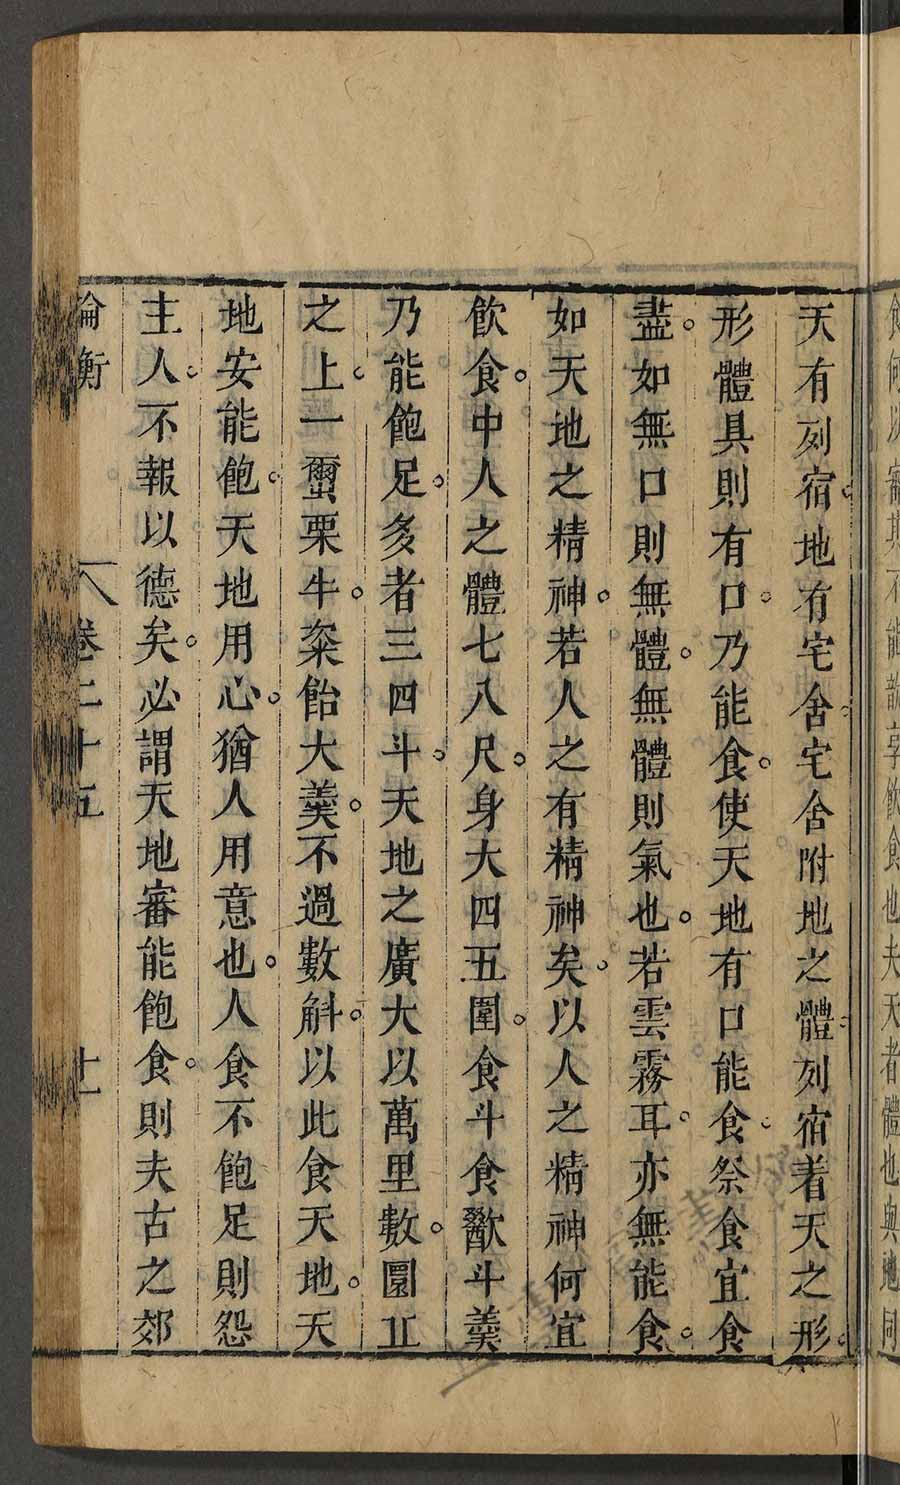 食何以審其不能歆享飲食也夫天者體也與地同
天有列宿。地有宅舍。宅舍附地之體。列宿着天之形。
形體具則有口。乃能食。使天地有口能食。祭食宜食
盡。如無口則無體。無體則氣也。若雲霧耳。亦無能食。
如天地之精神。若人之有精神矣。以人之精神何宜
飲食。中人之體七八尺。身大四五圍。食斗食歠斗羹
乃能飽足。多者三四斗。天地之廣大以萬里數。圜丘
之上。一蠒栗牛。粢飴大羹。不過數斛。以此食天地。天
地安能飽。天地用心。猶人用意也。人食不飽足則怨
主人。不報以德矣。必謂天地審能飽食。則夫古之郊
論衡 卷二十五 十一